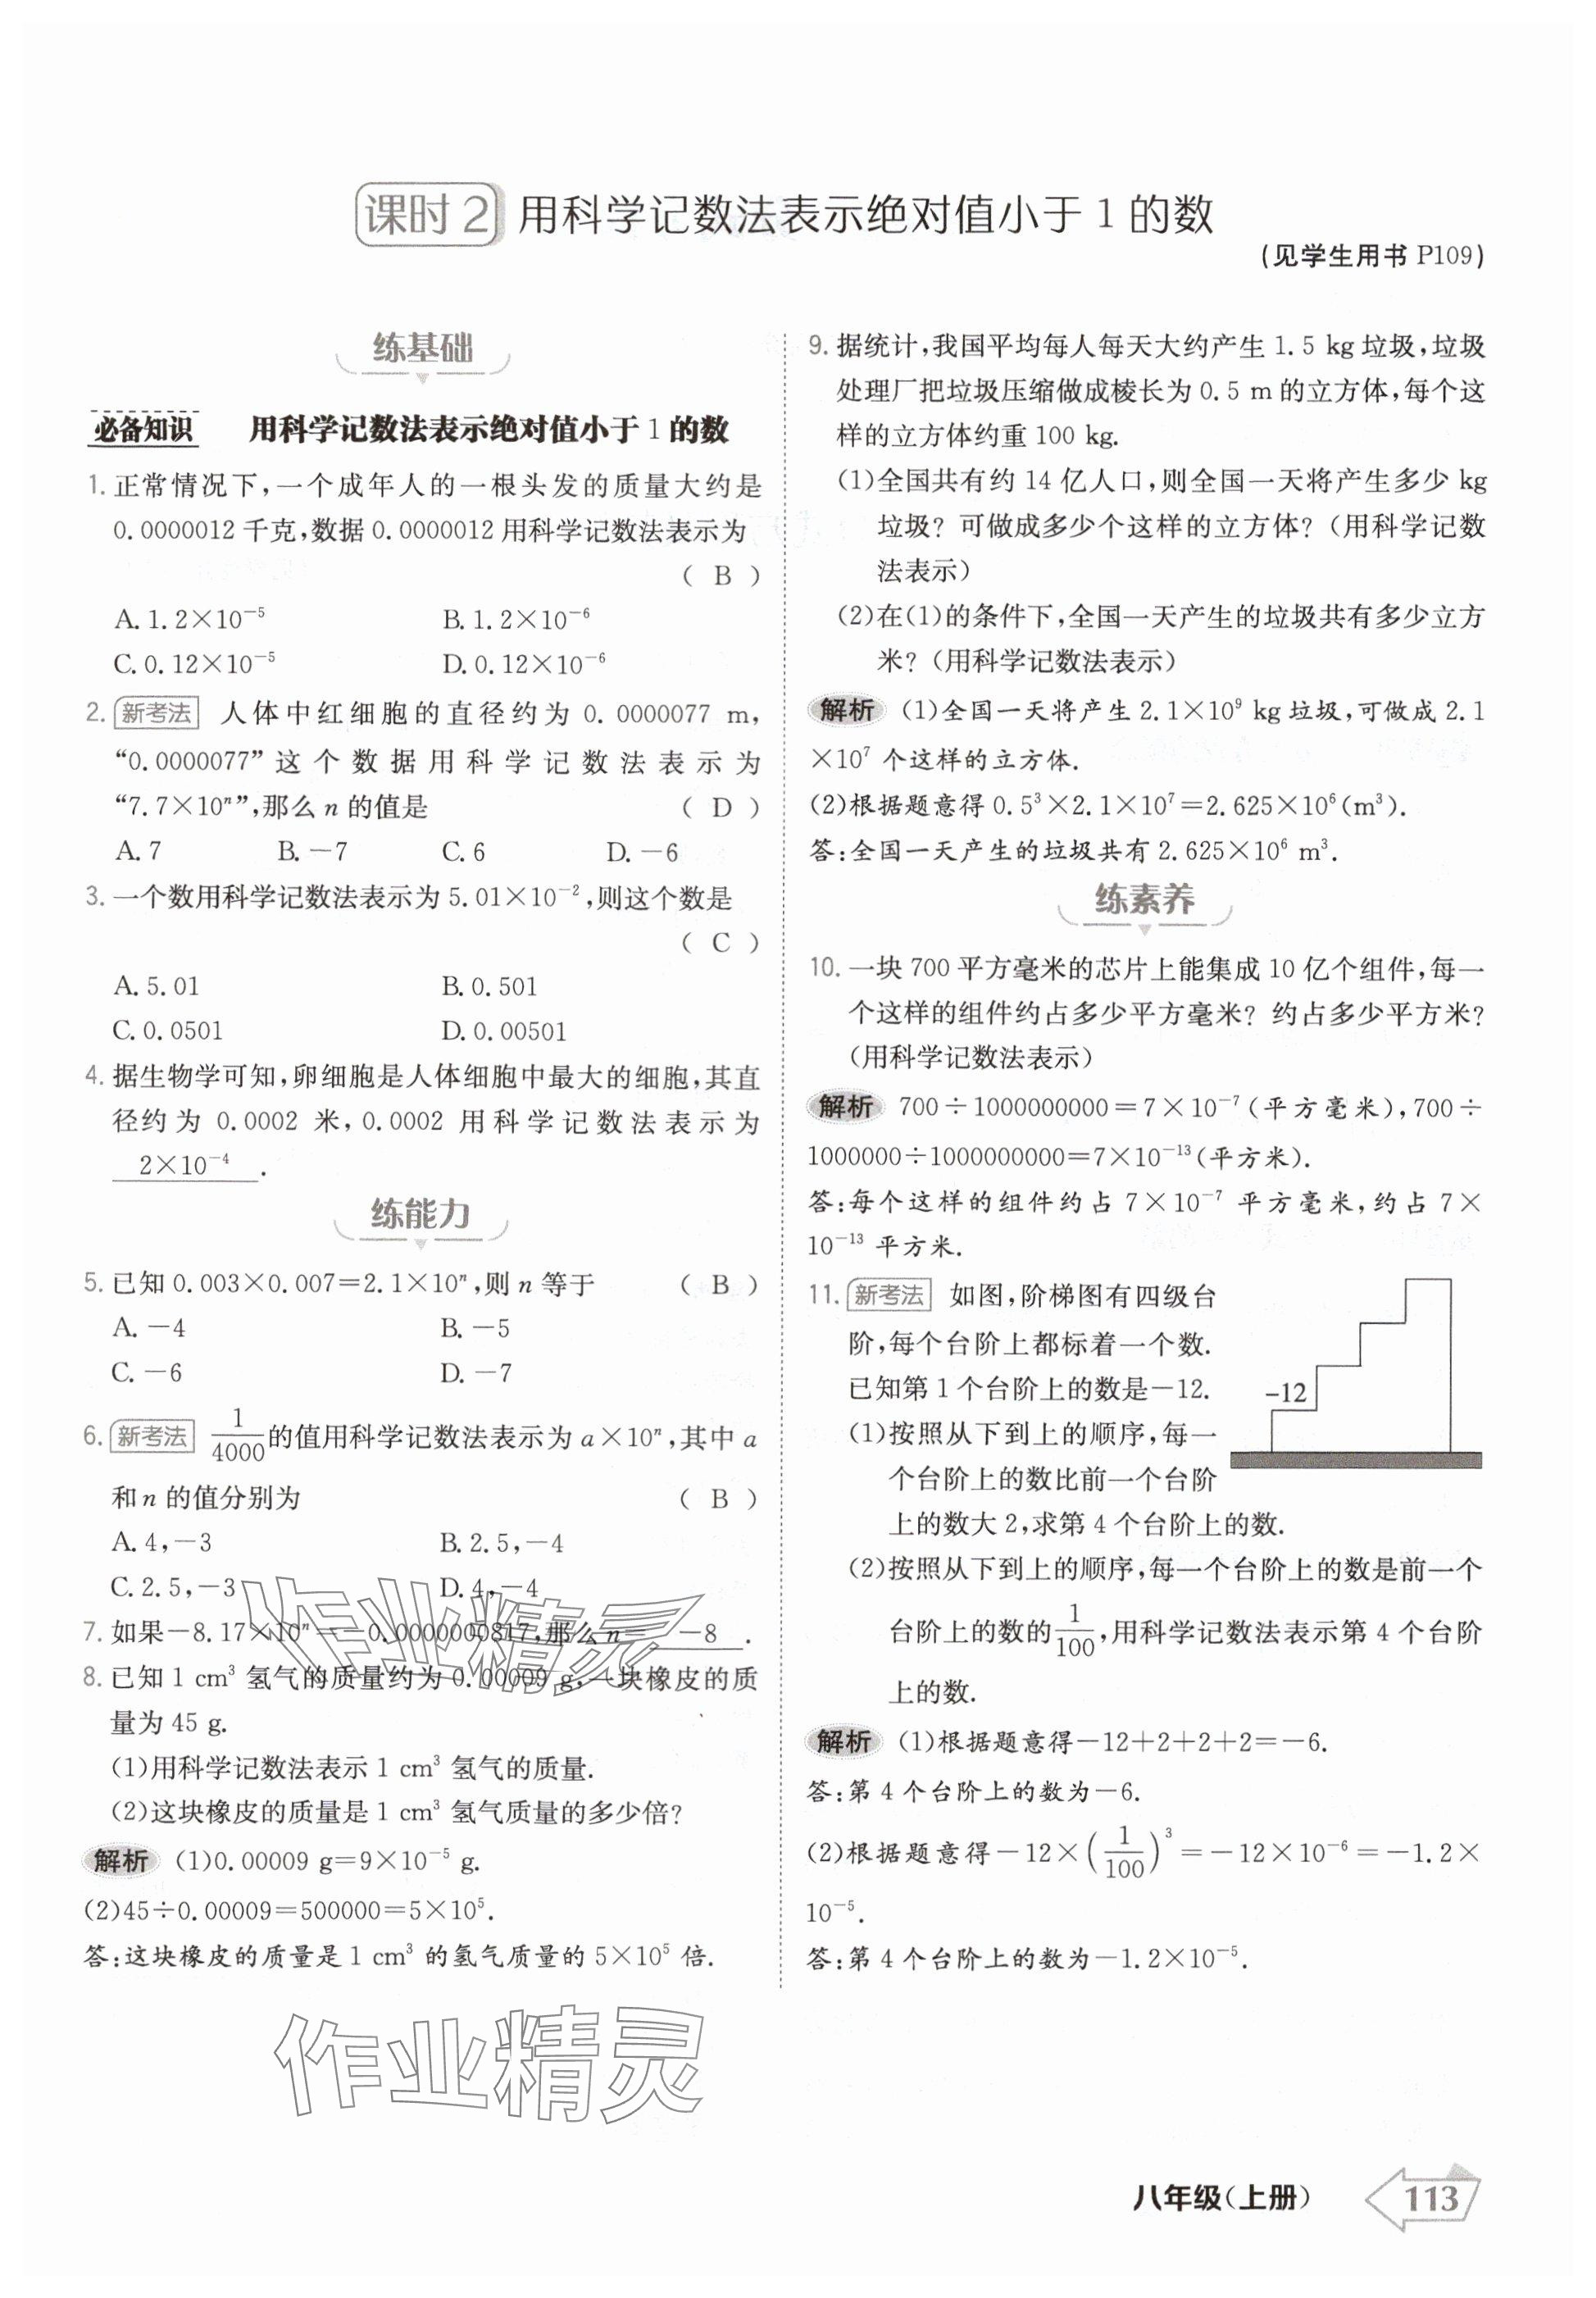 课时2 用科学记数法表示绝对值小于1的数
(见学生用书 P109)
练基础
必备知识 用科学记数法表示绝对值小于1的数
1. 正常情况下,一个成年人的一根头发的质量大约是
0.0000012千克,数据0.0000012用科学记数法表示为
( B )
A. 1.2×10⁻⁵ B. 1.2×10⁻⁶
C. 0.12×10⁻⁵ D. 0.12×10⁻⁶
2. 新考法 人体中红细胞的直径约为0.0000077 m,
“0.0000077”这个数据用科学记数法表示为
“7.7×10ⁿ”,那么n的值是 ( D )
A. 7 B. -7 C. 6 D. -6
3. 一个数用科学记数法表示为5.01×10⁻²,则这个数是
( C )
A. 5.01 B. 0.501
C. 0.0501 D. 0.00501
4. 据生物学可知,卵细胞是人体细胞中最大的细胞,其直
径约为0.0002米,0.0002用科学记数法表示为
2×10⁻⁴ .
练能力
5. 已知0.003×0.007=2.1×10ⁿ,则n等于 ( B )
A. -4 B. -5
C. -6 D. -7
6. 新考法 1/4000的值用科学记数法表示为a×10ⁿ,其中a
和n的值分别为 ( B )
A. 4,-3 B. 2.5,-4
C. 2.5,-3 D. 4,-4
7. 如果-8.17×10ⁿ=-0.0000000817,那么n= -8 .
8. 已知1 cm³氢气的质量约为0.00009 g,一块橡皮的质
量为45 g.
(1)用科学记数法表示1 cm³氢气的质量.
(2)这块橡皮的质量是1 cm³氢气质量的多少倍?
解析 (1)0.00009 g=9×10⁻⁵ g.
(2)45÷0.00009=500000=5×10⁵.
答:这块橡皮的质量是1 cm³的氢气质量的5×10⁵倍.
9. 据统计,我国平均每人每天大约产生1.5 kg垃圾,垃圾
处理厂把垃圾压缩做成棱长为0.5 m的立方体,每个这
样的立方体约重100 kg.
(1)全国共有约14亿人口,则全国一天将产生多少kg
垃圾?可做成多少个这样的立方体?(用科学记数
法表示)
(2)在(1)的条件下,全国一天产生的垃圾共有多少立方
米?(用科学记数法表示)
解析 (1)全国一天将产生2.1×10⁹ kg垃圾,可做成2.1
×10⁷个这样的立方体.
(2)根据题意得0.5³×2.1×10⁷=2.625×10⁶(m³).
答:全国一天产生的垃圾共有2.625×10⁶ m³.
练素养
10. 一块700平方毫米的芯片上能集成10亿个组件,每一
个这样的组件约占多少平方毫米?约占多少平方米?
(用科学记数法表示)
解析 700÷1000000000=7×10⁻⁷(平方毫米),700÷
1000000÷1000000000=7×10⁻¹³(平方米).
答:每个这样的组件约占7×10⁻⁷平方毫米,约占7×
10⁻¹³平方米.
11. 新考法 如图,阶梯图有四级台
阶,每个台阶上都标着一个数.
已知第1个台阶上的数是-12.
(1)按照从下到上的顺序,每一
个台阶上的数比前一个台阶
上的数大2,求第4个台阶上的数.
-12
(2)按照从下到上的顺序,每一个台阶上的数是前一个
台阶上的数的1/100,用科学记数法表示第4个台阶
上的数.
解析 (1)根据题意得-12+2+2+2=-6.
答:第4个台阶上的数为-6.
(2)根据题意得-12×(1/100)³=-12×10⁻⁶=-1.2×
10⁻⁵.
答:第4个台阶上的数为-1.2×10⁻⁵.
作业精灵
作业精灵
八年级(上册) 113